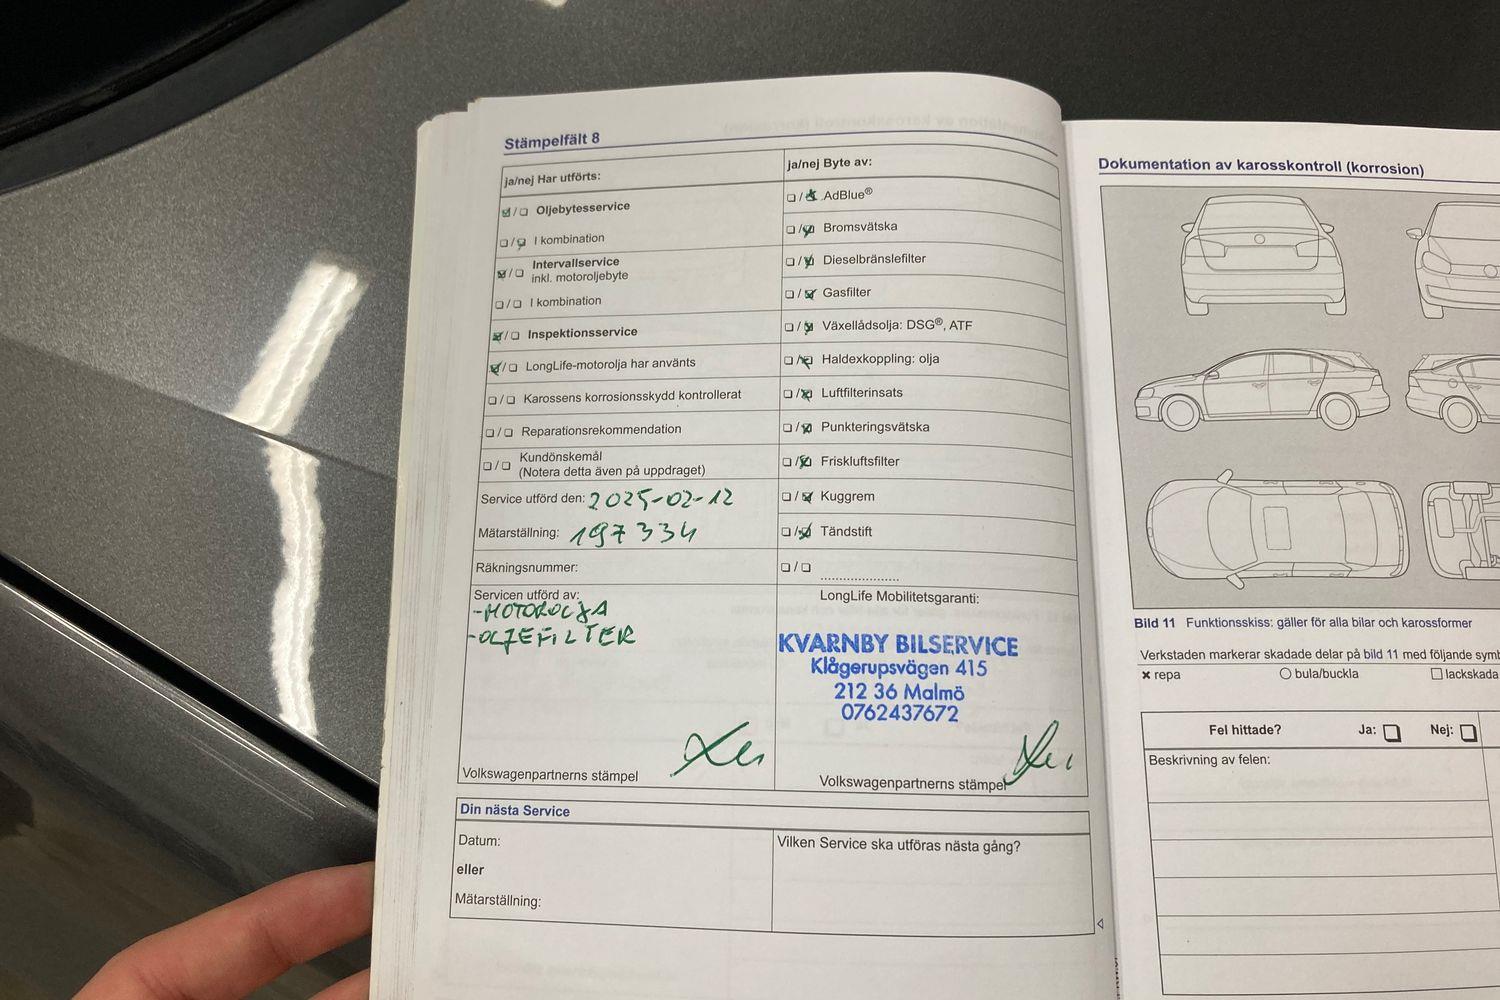 Stämpelfält 8
ja/nej Har utförts:
Oljebytesservice
I kombination
Intervallservice
inkl. motoroljebyte
I kombination
Inspektionsservice
LongLife-motorolja har använts
Karossens korrosionsskydd kontrollerat
Reparationsrekommendation
Kundönskemål
(Notera detta även på uppdraget)
Service utförd den: 2025-02-12
Mätarställning: 197334
Räkningsnummer:
Servicen utförd av:
-MOTOROLJA
-OLJEFILTER
Volkswagenpartnerns stämpel
ja/nej Byte av:
AdBlue®
Bromsvätska
Dieselbränslefilter
Gasfilter
Växellådsolja: DSG®, ATF
Haldexkoppling: olja
Luftfilterinsats
Punkteringsvätska
Friskluftsfilter
Kuggrem
Tändstift
LongLife Mobilitetsgaranti:
KVARNBY BILSERVICE
Klågerupsvägen 415
212 36 Malmö
0762437672
Volkswagenpartnerns stämpel
Din nästa Service
Datum:
eller
Mätarställning:
Vilken Service ska utföras nästa gång?
Dokumentation av karosskontroll (korrosion)
Bild 11 Funktionsskiss: gäller för alla bilar och karossformer
Verkstaden markerar skadade delar på bild 11 med följande
repa bula/buckla lackskada
Fel hittade? Ja: Nej:
Beskrivning av felen: